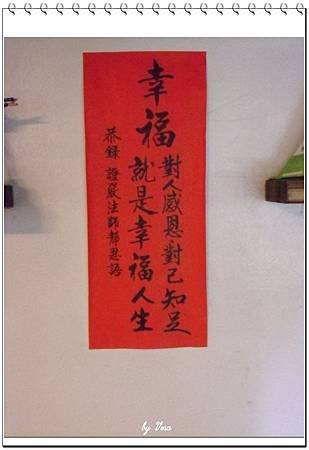 幸福
對人感恩對己知足
就是幸福人生
恭錄 證嚴法師靜思語
by Vera